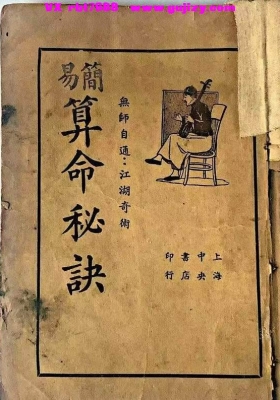 www.gujizy.com
簡易
算命秘訣
無師自通：江湖奇術
上海
中央
書店
印行